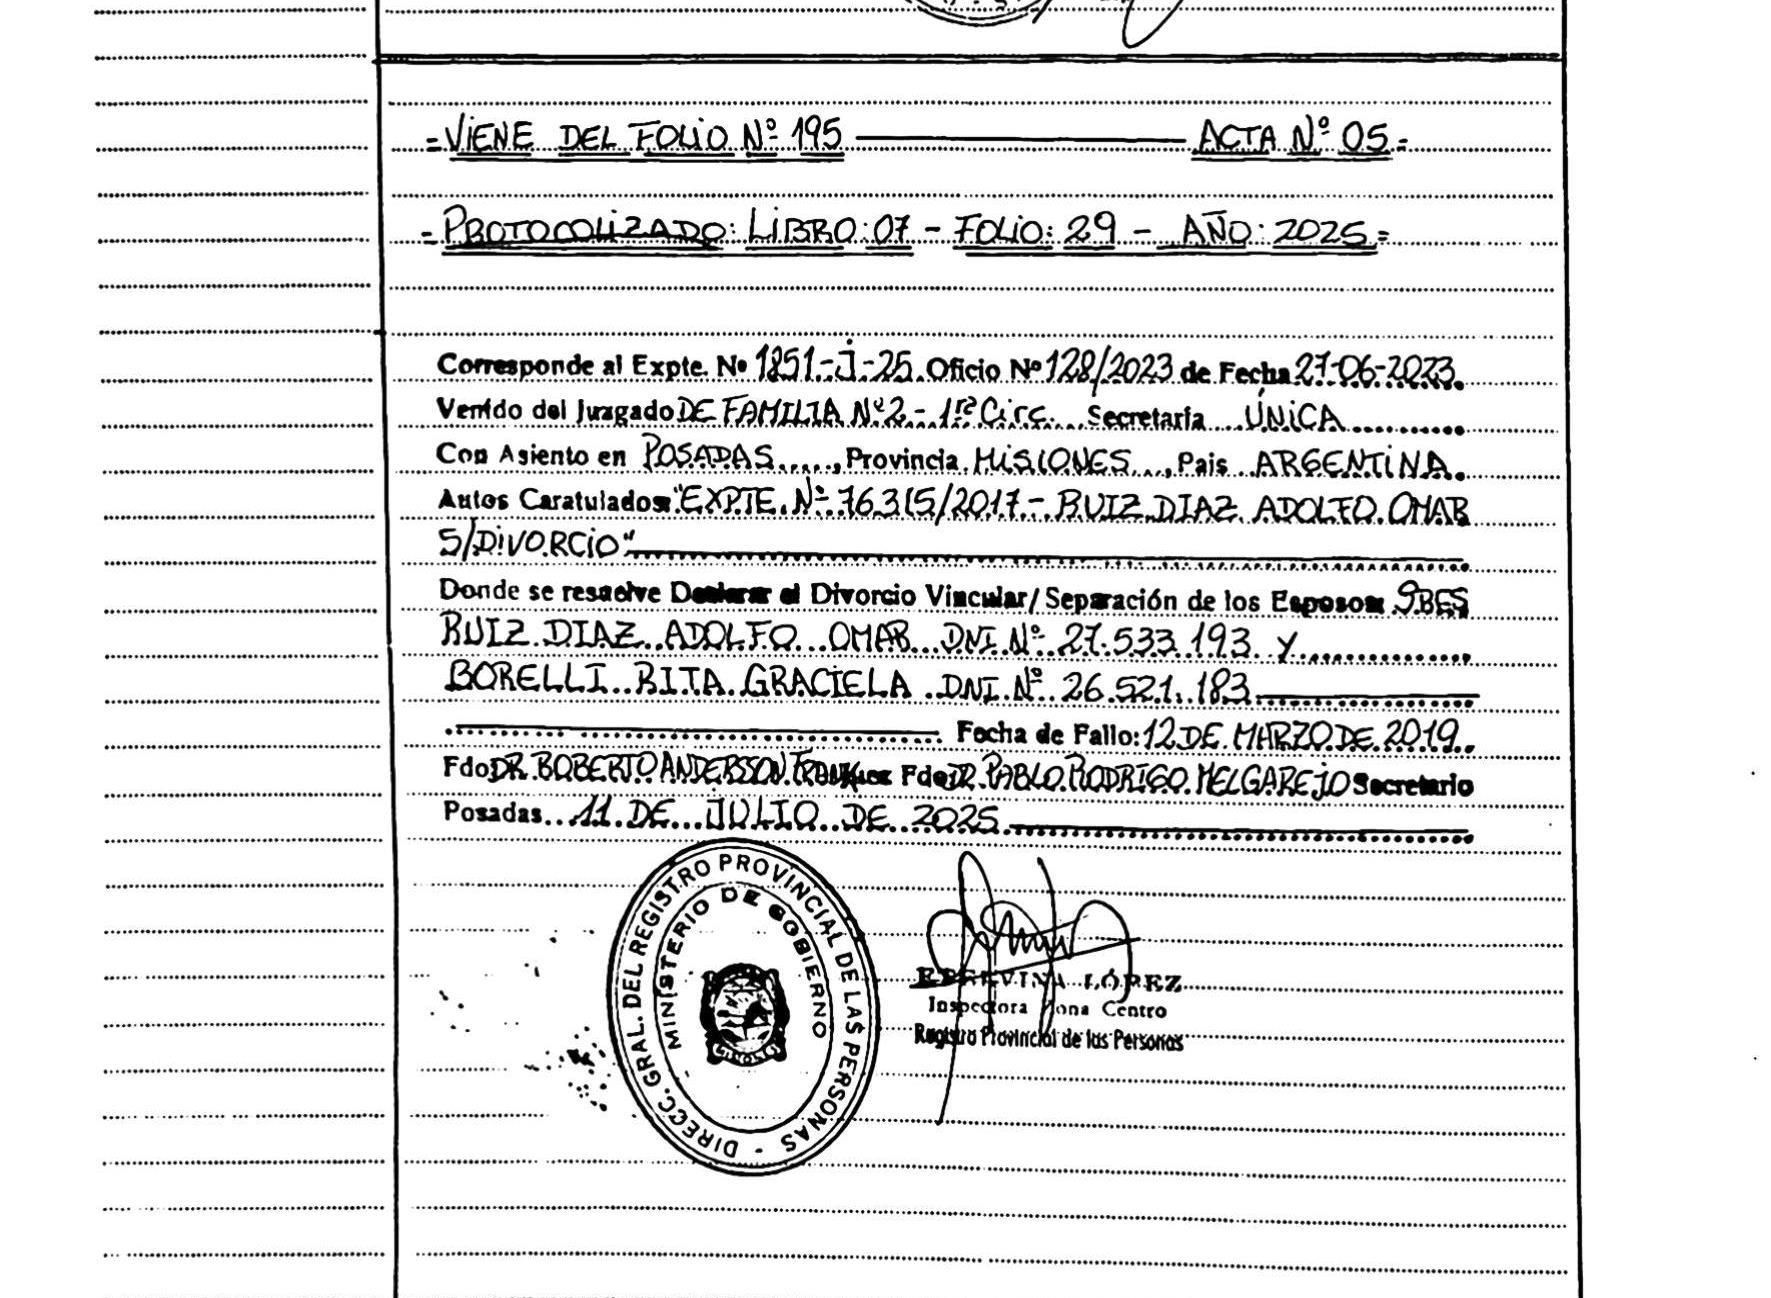 =VIENE DEL FOLIO Nº 195 ACTA Nº 05=
=PROTOCOLIZADO: LIBRO: 07 - FOLIO: 29 - AÑO: 2025=
Corresponde al Expte. Nº 1851-J-25. Oficio Nº 128/2023 de Fecha 27-06-2023.
Venido del Juzgado DE FAMILIA Nº 2 - 1ra Circ. Secretaria ÚNICA
Con Asiento en POSADAS, Provincia MISIONES, Pais ARGENTINA.
Autos Caratulados: "EXPTE. Nº 76315/2017 - RUIZ DIAZ ADOLFO OMAR
S/DIVORCIO"
Donde se resuelve Declarar el Divorcio Vincular/Separación de los Esposos: SRES
RUIZ DIAZ ADOLFO OMAR DNI Nº 27.533.193 Y
BORELLI RITA GRACIELA DNI Nº 26.521.183
Fecha de Fallo: 12 DE MARZO DE 2019.
Fdo DR. ROBERTO ANDERSSON FRANK Juez Fdo DR. PABLO RODRIGO MELGAREJO Secretario
Posadas 11 DE JULIO DE 2025
DIRECC. GRAL. DEL REGISTRO PROVINCIAL DE LAS PERSONAS -
MINISTERIO DE GOBIERNO
LÓPEZ
Inspectora Zona Centro
Registro Provincial de las Personas